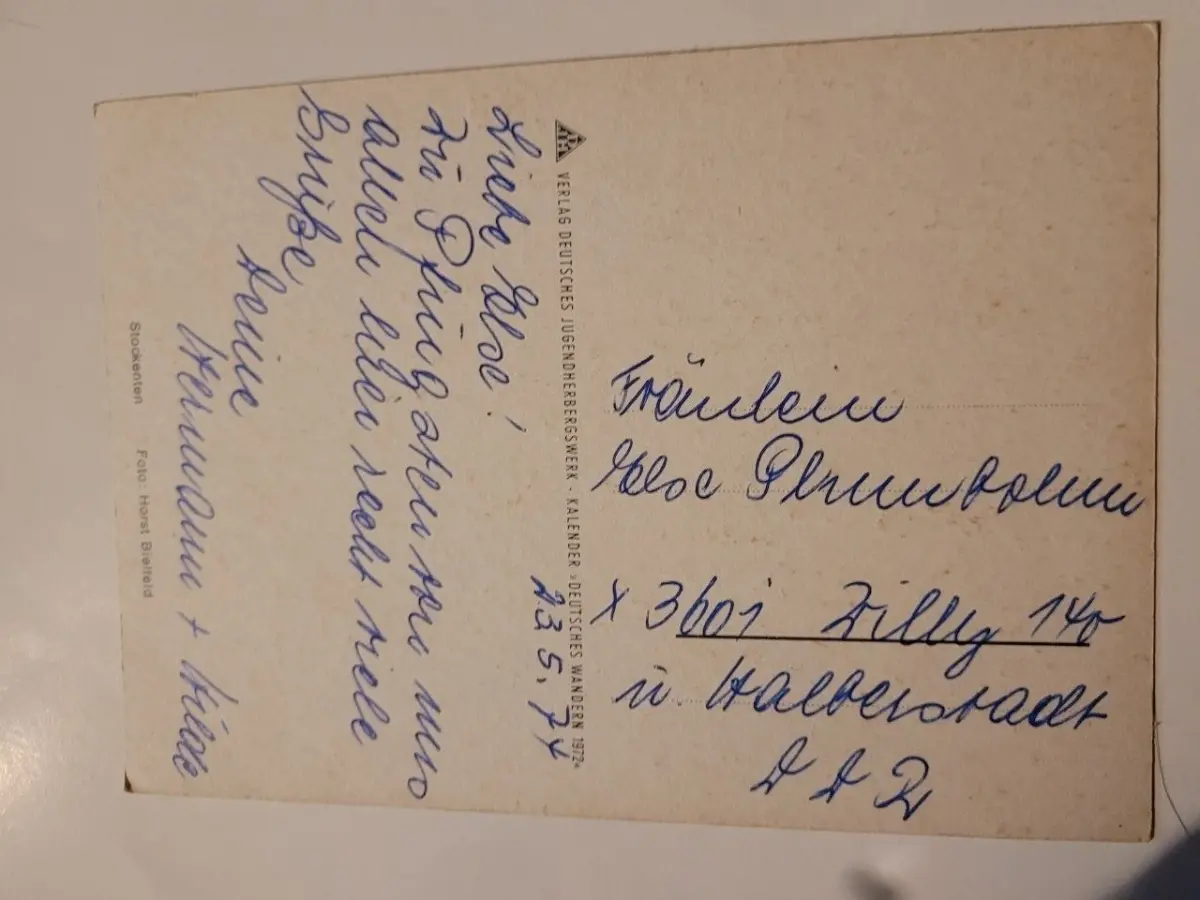 23.5.74
Liebe Else!
Zu Pfingsten von uns
allen hier recht viele
Grüße
Deine
Hermann + Hilde
Stockenten Foto: Horst Bielfeld
VERLAG DEUTSCHES JUGENDHERBERGSWERK · KALENDER »DEUTSCHES WANDERN 1972«
Fräulein
Else
X 3601 Zilly 140
ü. Halberstadt
DDR